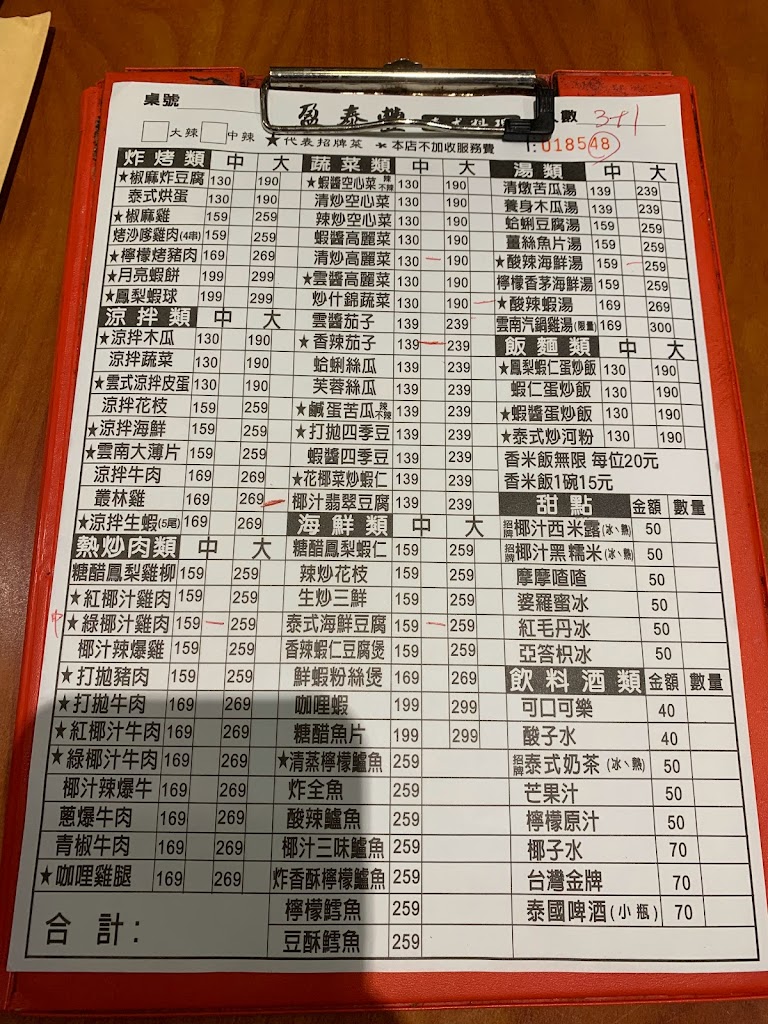 桌號
盈泰 泰式料理 人數 3+1
大辣 中辣 ★代表招牌菜 ★本店不加收服務費 018548
炸烤類 中 大
★椒麻炸豆腐 130 190
泰式烘蛋 130 190
★椒麻雞 159 259
烤沙嗲雞肉(4串) 159 259
★檸檬烤豬肉 169 269
★月亮蝦餅 199 299
★鳳梨蝦球 199 299
涼拌類 中 大
★涼拌木瓜 130 190
涼拌蔬菜 130 190
★雲式涼拌皮蛋 130 190
涼拌花枝 159 259
★涼拌海鮮 159 259
★雲南大薄片 159 259
涼拌牛肉 169 269
叢林雞 169 269
★涼拌生蝦(5尾) 169 269
熱炒肉類 中 大
糖醋鳳梨雞柳 159 259
★紅椰汁雞肉 159 259
中 ★綠椰汁雞肉 159 一 259
椰汁辣爆雞 159 259
★打拋豬肉 159 259
★打拋牛肉 169 269
★紅椰汁牛肉 169 269
★綠椰汁牛肉 169 269
椰汁辣爆牛 169 269
蔥爆牛肉 169 269
青椒牛肉 169 269
★咖哩雞腿 169 269
合計:
蔬菜類 中 大
★蝦醬空心菜 辣 不辣 130 190
清炒空心菜 130 190
辣炒空心菜 130 190
蝦醬高麗菜 130 190
清炒高麗菜 130 一 190
★雲醬高麗菜 130 190
炒什錦蔬菜 130 190
雲醬茄子 139 239
★香辣茄子 139 一 239
蛤蜊絲瓜 139 239
芙蓉絲瓜 139 239
★鹹蛋苦瓜 辣 不辣 139 239
★打拋四季豆 139 239
蝦醬四季豆 139 239
★花椰菜炒蝦仁 139 239
椰汁翡翠豆腐 139 239
海鮮類 中 大
糖醋鳳梨蝦仁 159 259
辣炒花枝 159 259
生炒三鮮 159 259
泰式海鮮豆腐 159 一 259
香辣蝦仁豆腐煲 159 259
鮮蝦粉絲煲 169 269
咖哩蝦 199 299
糖醋魚片 199 299
★清蒸檸檬鱸魚 259
炸全魚 259
酸辣鱸魚 259
椰汁三味鱸魚 259
炸香酥檸檬鱸魚 259
檸檬鱈魚 259
豆酥鱈魚 259
湯類 中 大
清燉苦瓜湯 139 239
養身木瓜湯 139 239
蛤蜊豆腐湯 159 259
薑絲魚片湯 159 259
★酸辣海鮮湯 159 一 259
檸檬香茅海鮮湯 159 259
★酸辣蝦湯 169 269
雲南汽鍋雞湯(限量) 169 300
飯麵類 中 大
★鳳梨蝦仁蛋炒飯 130 190
蝦仁蛋炒飯 130 190
★蝦醬蛋炒飯 130 190
★泰式炒河粉 130 190
香米飯無限 每位20元
香米飯1碗15元
甜點 金額 數量
招牌 椰汁西米露(冰、熱) 50
招牌 椰汁黑糯米(冰、熱) 50
摩摩喳喳 50
婆羅蜜冰 50
紅毛丹冰 50
亞答枳冰 50
飲料酒類 金額 數量
可口可樂 40
酸子水 40
招牌 泰式奶茶(冰、熱) 50
芒果汁 50
檸檬原汁 50
椰子水 70
台灣金牌 70
泰國啤酒(小瓶) 70